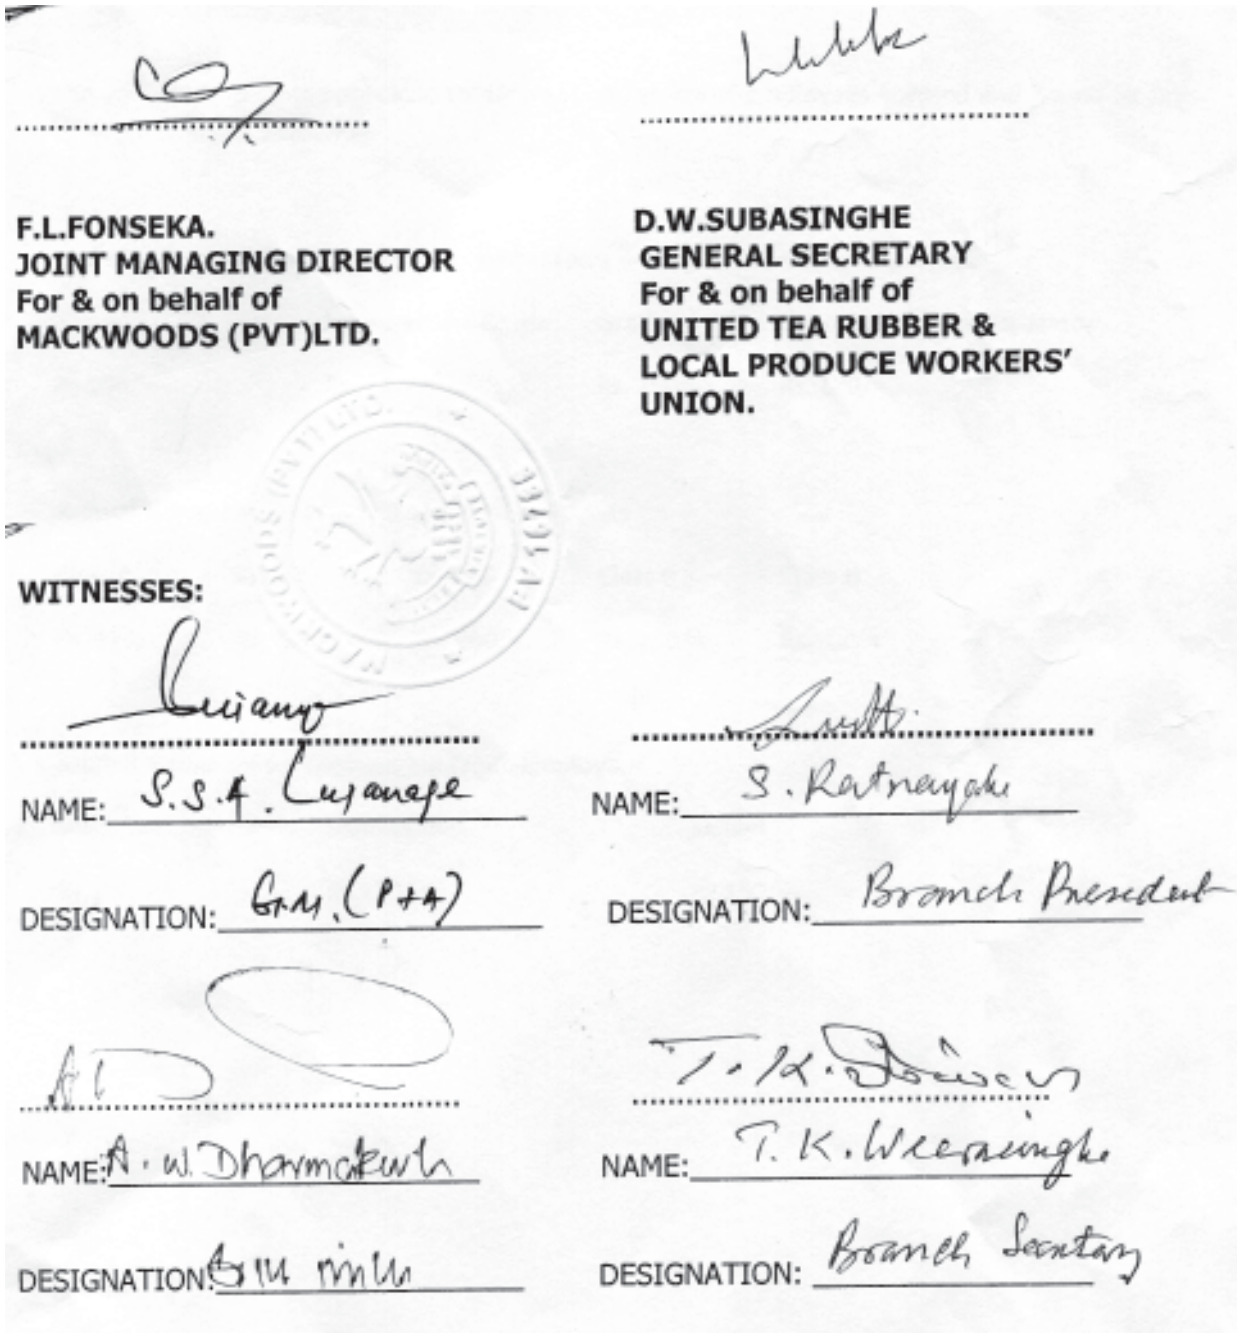 F.L.FONSEKA.
JOINT MANAGING DIRECTOR
For & on behalf of
MACKWOODS (PVT)LTD.
D.W.SUBASINGHE
GENERAL SECRETARY
For & on behalf of
UNITED TEA RUBBER &
LOCAL PRODUCE WORKERS’
UNION.
WITNESSES:
NAME: S.S.A. Liyanage
DESIGNATION: G.M. (P+A)
NAME: S. Ratnayake
DESIGNATION: Branch President
NAME: A. W.
DESIGNATION:
T. K.
NAME: T. K. Weerasinghe
DESIGNATION: Branch Secretary